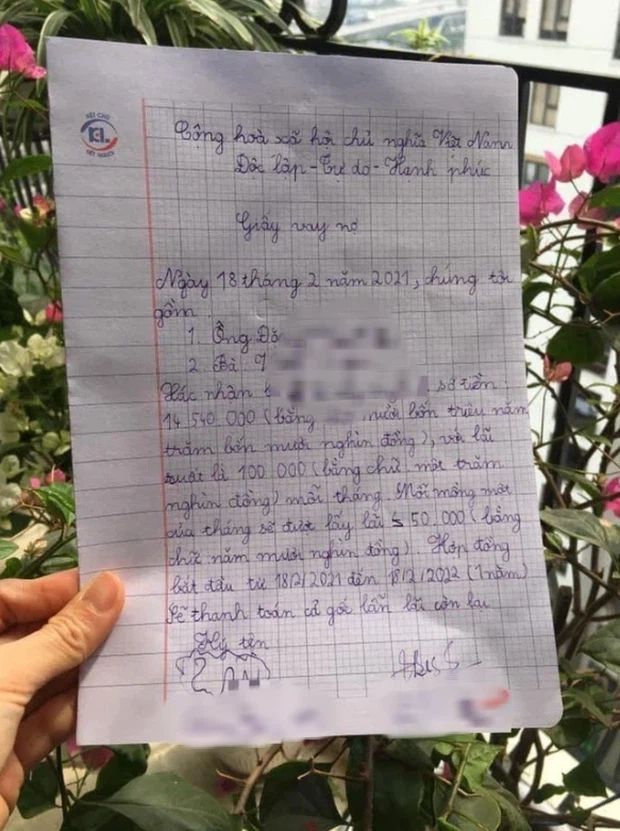 KẾT CHO
KL
HẾT NGƯỜI
Công hoà xã hội chủ nghĩa Việt Nam
Độc lập - Tự do - Hạnh phúc
Giấy vay nợ
Ngày 18 tháng 2 năm 2021, chúng tôi
gồm
1. Ông Đỗ
2. Bà T
Xác nhận số tiền:
14 540 000 (bằng mười bốn triệu năm
trăm bốn mươi nghìn đồng), và lãi
suất là 100 000 (bằng chữ một trăm
nghìn đồng) mỗi tháng. Mỗi mồng một
của tháng sẽ được lấy lãi 50.000 (bằng
chữ năm mươi nghìn đồng). Hợp đồng
bắt đầu từ 18/2/2021 đến 18/2/2022 (1 năm)
Sẽ thanh toán cả gốc lẫn lãi còn lại
Ký tên